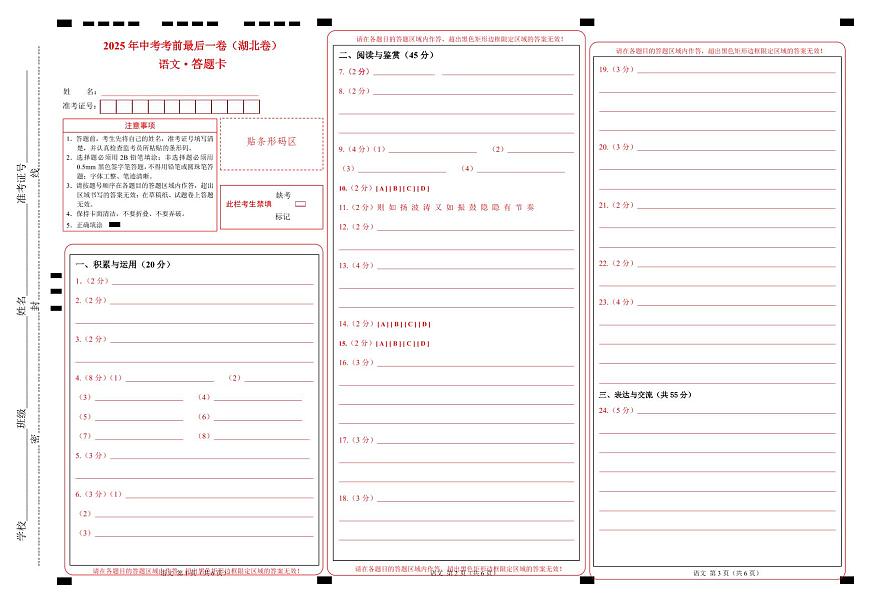 2025 年中考考前最后一卷（湖北卷）
语文·答题卡
姓　　名：
准考证号：
注意事项
1．答题前，考生先将自己的姓名，准考证号填写清
楚，并认真检查监考员所粘贴的条形码。
2．选择题必须用 2B 铅笔填涂；非选择题必须用
0.5mm 黑色签字笔答题，不得用铅笔或圆珠笔答
题；字体工整、笔迹清晰。
3．请按题号顺序在各题目的答题区域内作答，超出
区域书写的答案无效；在草稿纸、试题卷上答题
无效。
4．保持卡面清洁，不要折叠、不要弄破。
5．正确填涂
贴条形码区
缺考
此栏考生禁填
标记
准考证号
姓名
班级
学校
线
封
密
一、积累与运用（20 分）
1.（2 分）
2.（2 分）
3.（2 分）
4.（8 分）（1） （2）
（3） （4）
（5） （6）
（7） （8）
5.（3 分）
6.（3 分）（1）
（2）
（3）
请在各题目的答题区域内作答，超出黑色矩形边框限定区域的答案无效！
请在各题目的答题区域内作答，超出黑色矩形边框限定区域的答案无效！
二、阅读与鉴赏（45 分）
7.（2 分）
8.（2 分）
9.（4 分）（1） （2）
（3） （4）
10.（2 分）[A] [B] [C] [D]
11.（2 分）则 如 扬 波 涛 又 如 振 鼓 隐 隐 有 节 奏
12.（2 分）
13.（4 分）
14.（2 分）[A] [B] [C] [D]
15.（2 分）[A] [B] [C] [D]
16.（3 分）
17.（3 分）
18.（3 分）
请在各题目的答题区域内作答，超出黑色矩形边框限定区域的答案无效！
语文 第 2 页（共 6 页）
请在各题目的答题区域内作答，超出黑色矩形边框限定区域的答案无效！
19.（3 分）
20.（3 分）
21.（2 分）
22.（2 分）
23.（4 分）
三、表达与交流（共 55 分）
24.（5 分）
语文 第 3 页（共 6 页）